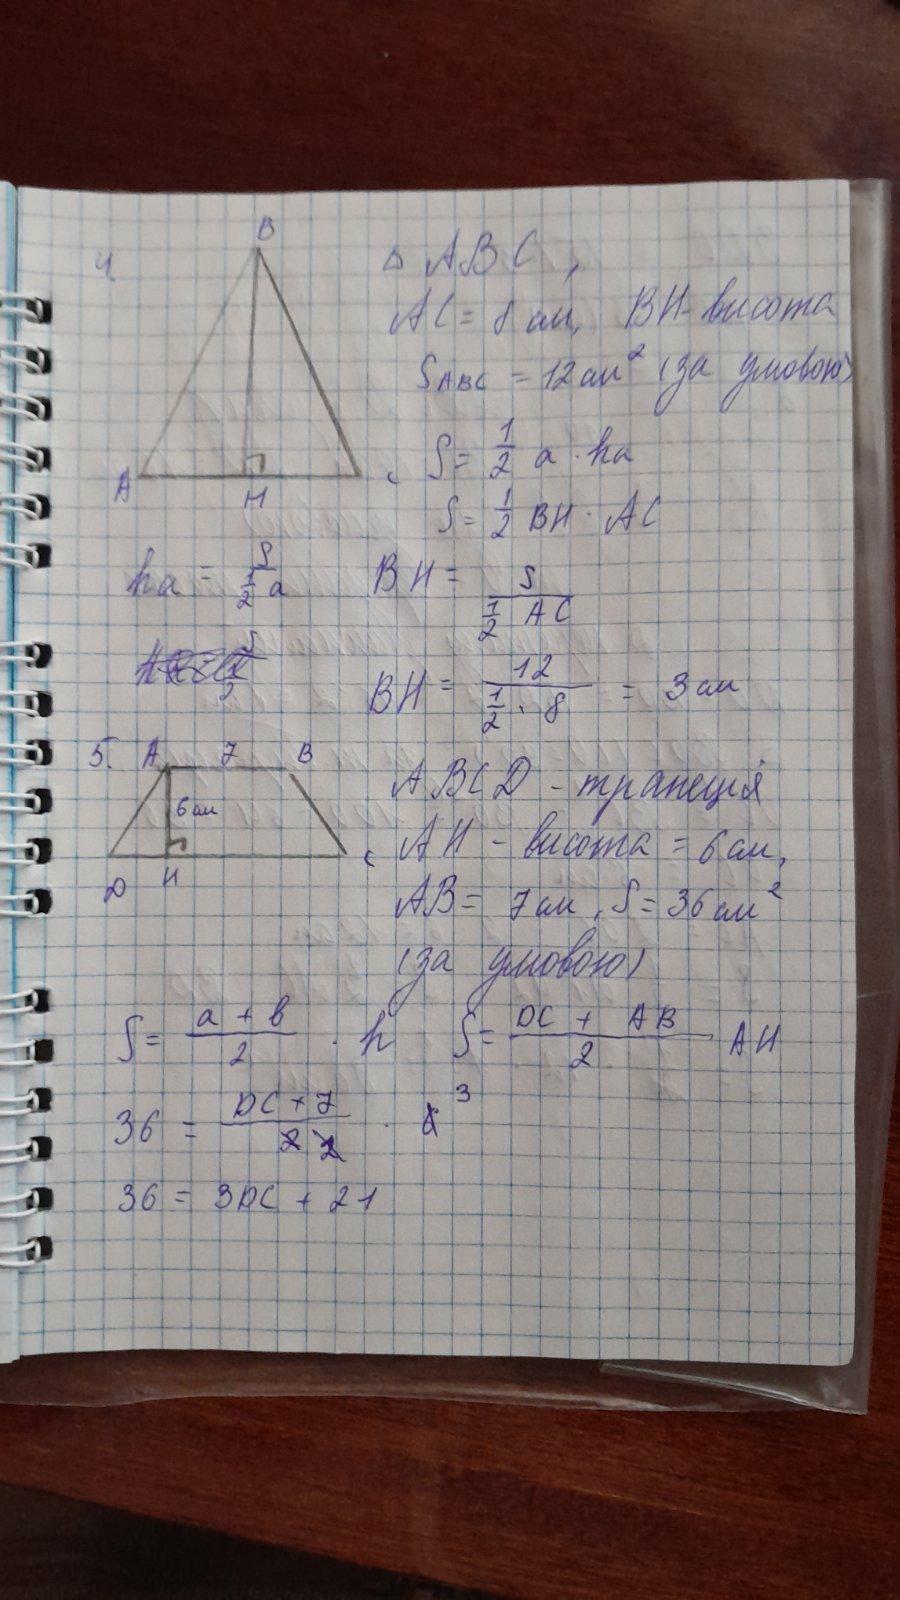 4.
B
A
H
C
△ ABC,
AC = 8 см, BH - висота
S ABC = 12 см² (за умовою)
S = 1/2 a · ha
S = 1/2 BH · AC
ha = S / (1/2 a)
BH = S / (1/2 AC)
BH = 12 / (1/2 · 8) = 3 см
5.
A 7 B
6 см
D H C
ABCD - трапеція
AH - висота = 6 см,
AB = 7 см, S = 36 см²
(за умовою)
S = (a + b) / 2 · h
S = (DC + AB) / 2 AH
36 = (DC + 7) / 2 · 6 3
36 = 3DC + 21